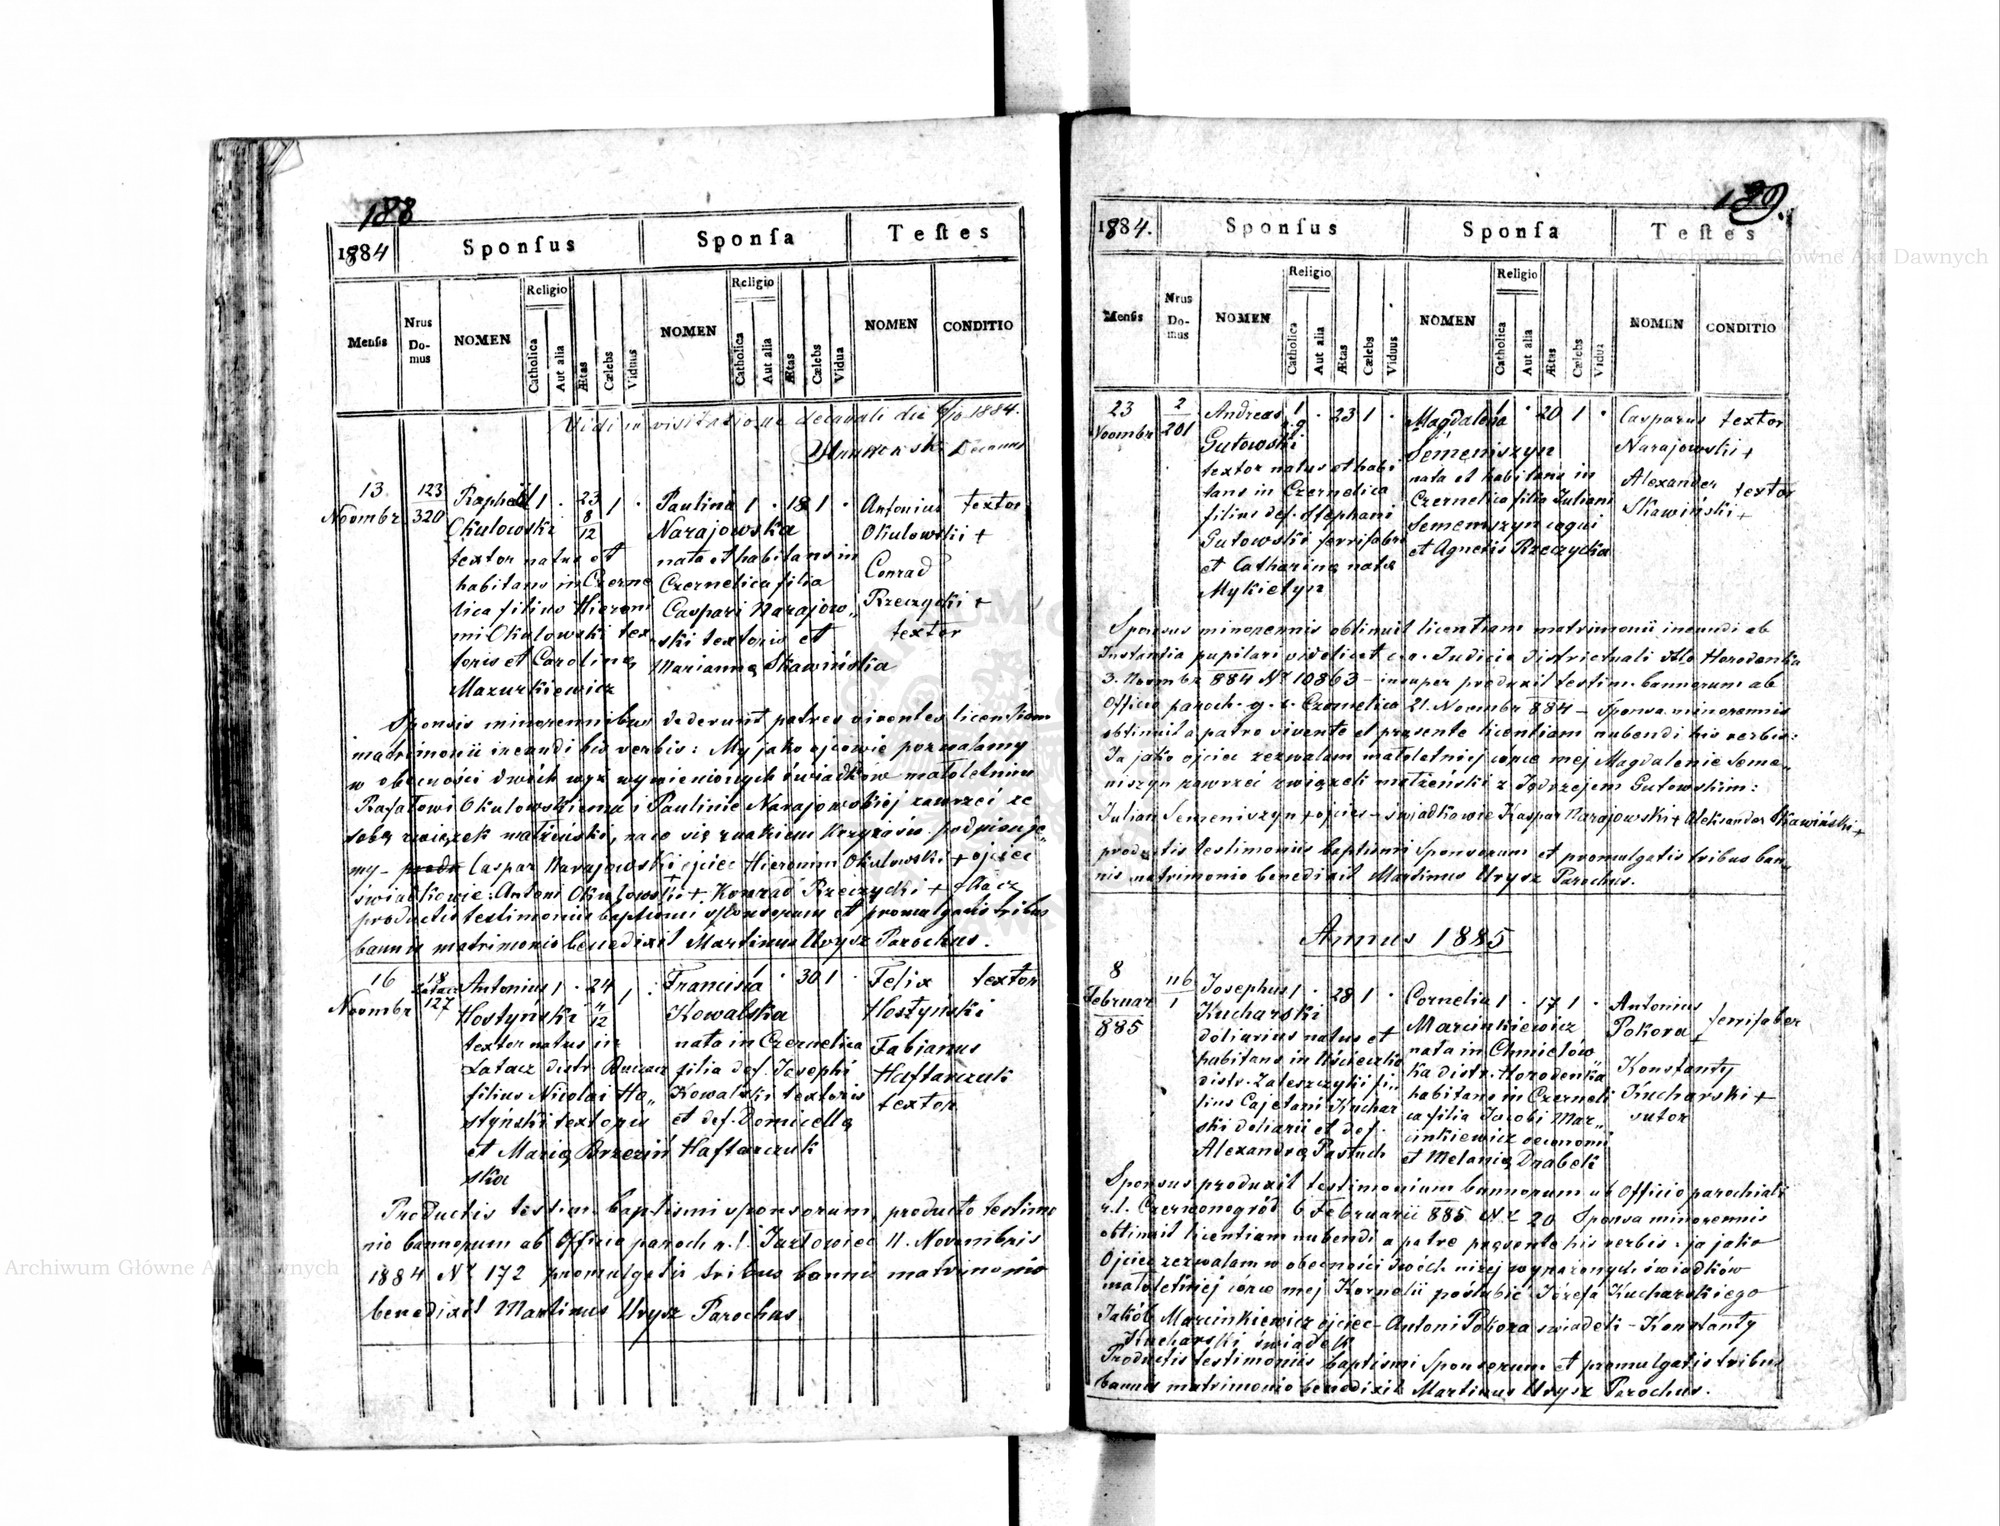 188
1884
Sponſus
Sponſa
Teſtes
Menſis
Nrus Domus
NOMEN
Religio
Catholica
Aut alia
Ætas
Cælebs
Viduus
NOMEN
Religio
Catholica
Aut alia
Ætas
Cælebs
Vidua
NOMEN
CONDITIO
Vidi in visitatione decanali die 1884.
Decanus
13
Novembr
123
320
Raphael 1 · 23 1 ·
8
12
Okulowski
textor natus et
habitans in Czerne
lica filius Hieroni
mi Okulowski tex
toris et Carolinę
Mazurkiewicz
Paulina 1 · 18 1 ·
Narajowska
nata et habitans in
Czernelica filia
Caspari Narajow„
ski textoris et
Mariannę Skawińska
Antonius textor
Okulowski +
Conrad
Rzeczycki +
textor
Sponsis minorennibus dederunt patres viventes licentiam
matrimonii ineundi his verbis: My jako ojcowie pozwalamy
w obecności dwóch wyż wymienionych świadków małoletnim
Rafałowi Okulowskiemu i Paulinie Narajowskiej zawrzeć ze
sobą związek małżeński, na co się znakiem krzyżów podpisuje„
my - Caspar Narajowski ojciec Hieronim Okulowski + ojciec
świadkowie: Antoni Okulowski + Konrad Rzeczycki + tkacz
productis testimoniis baptismi sponsorum et promulgatis tribus
bannis matrimonio benedixit Martinus Urysz Parochus.
16
Novembr
18
Łatacz
127
Antonius 1 · 24 1 ·
4
12
Hostyński
textor natus in
Łatacz distr. Buczacz
filius Nicolai Ho„
styński textoris
et Marię Brzeziń
ska
Francisca · 30 1 ·
Kowalska
nata in Czernelica
filia def. Josephi
Kowalski textoris
et def. Domicellę
Haftarczuk
Felix textor
Hostynski
Fabianus
Haftarczuk
textor
Productis testim. baptismi sponsorum, producto testimo
nio bannorum ab Officio paroch r. l. Jazłowiec 11. Novembris
1884 Nr 172 promulgatis tribus bannis matrimonio
benedixit Martinus Urysz Parochus
189.
1884.
Sponſus
Sponſa
Teſtes
Menſis
Nrus Domus
NOMEN
Religio
Catholica
Aut alia
Ætas
Cælebs
Viduus
NOMEN
Religio
Catholica
Aut alia
Ætas
Cælebs
Vidua
NOMEN
CONDITIO
23
Novembr
2
201
Andreas 1 · 23 1 ·
Gutowski
textor natus et habi
tans in Czernelica
filius def. Stephani
Gutowski ferrifabri
et Catharinę natę
Mykietyn
Magdalena 1 · 20 1 ·
Semeniszyn
nata et habitans in
Czernelica filia Juliani
Semeniszyn coqui
et Agnetis Rzeczycka
Casparus textor
Narajowski +
Alexander textor
Skawiński +
Sponsus minorennis obtinuit licentiam matrimonii ineundi ab
Instantia pupilari videlicet c. r. Judicio districtuali Horodenka
3. Novembr 884 Nr 10863 - insuper produxit testim. bannorum ab
Officio paroch. g. c. Czernelica 21. Novembr 884 - sponsa minorennis
obtinuit a patre vivente et presente licentiam nubendi his verbis:
Ja jako ojciec zezwalam małoletniej córce mej Magdalenie Seme„
niszyn zawrzeć związek małżeński z Jędrzejem Gutowskim:
Julian Semeniszyn + ojciec - świadkowie Kaspar Narajowski + Aleksander Skawiński +
productis testimoniis baptismi sponsorum et promulgatis tribus ban„
nis matrimonio benedixit Martinus Urysz Parochus.
Annus 1885
8
Februar
885
116
1
Josephus 1 · 28 1 ·
Kucharski
doliarius natus et
habitans in Uścieczko
distr. Zaleszczyki fi„
lius Cajetani Kuchar
ski doliarii et def.
Alexandrę Pastuch
Cornelia 1 · 17 1 ·
Marcinkiewicz
nata in Chmielów„
ka distr. Horodenka
habitans in Czerneli
ca filia Jacobi Mar„
cinkiewicz oeconomi
et Melanię Drabek
Antonius
Pokora + ferrifaber
Konstanty
Kucharski +
sutor
Sponsus produxit testimonium bannorum ab Officio parochiali
r. l. Czerwonogród 6 Februarii 885 Nr 20 Sponsa minorennis
obtinuit licentiam nubendi a patre pręsente his verbis: ja jako
Ojciec zezwalam w obecności dwóch niżej wyrażonych świadków
małoletniej córce mej Kornelii poślubić Józefa Kucharskiego
Jakób Marcinkiewicz ojciec - Antoni Pokora świadek - Konstanty
Kucharski świadek
Productis testimoniis baptismi sponsorum et promulgatis tribus
bannis matrimonio benedixit Martinus Urysz Parochus.
Archiwum Główne Akt Dawnych
Archiwum Główne Akt Dawnych